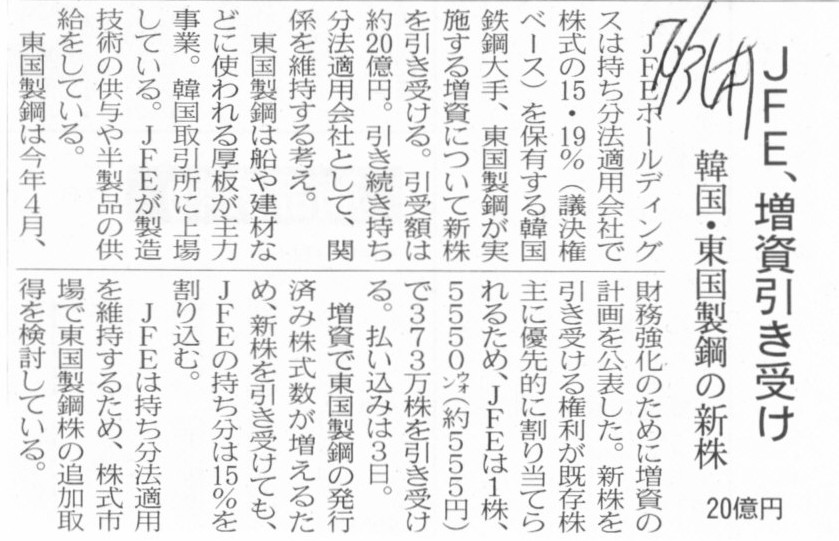 7/3(木)
JFE、増資引き受け
韓国・東国製鋼の新株
20億円
JFEホールディング
スは持ち分法適用会社で
株式の15・19%(議決権
ベース)を保有する韓国
鉄鋼大手、東国製鋼が実
施する増資について新株
を引き受ける。引受額は
約20億円。引き続き持ち
分法適用会社として、関
係を維持する考え。
東国製鋼は船や建材な
どに使われる厚板が主力
事業。韓国取引所に上場
している。JFEが製造
技術の供与や半製品の供
給をしている。
東国製鋼は今年4月、
財務強化のために増資の
計画を公表した。新株を
引き受ける権利が既存株
主に優先的に割り当てら
れるため、JFEは1株、
5550ウォン(約555円)
で373万株を引き受け
る。払い込みは3日。
増資で東国製鋼の発行
済み株式数が増えるた
め、新株を引き受けても、
JFEの持ち分は15%を
割り込む。
JFEは持ち分法適用
を維持するため、株式市
場で東国製鋼株の追加取
得を検討している。